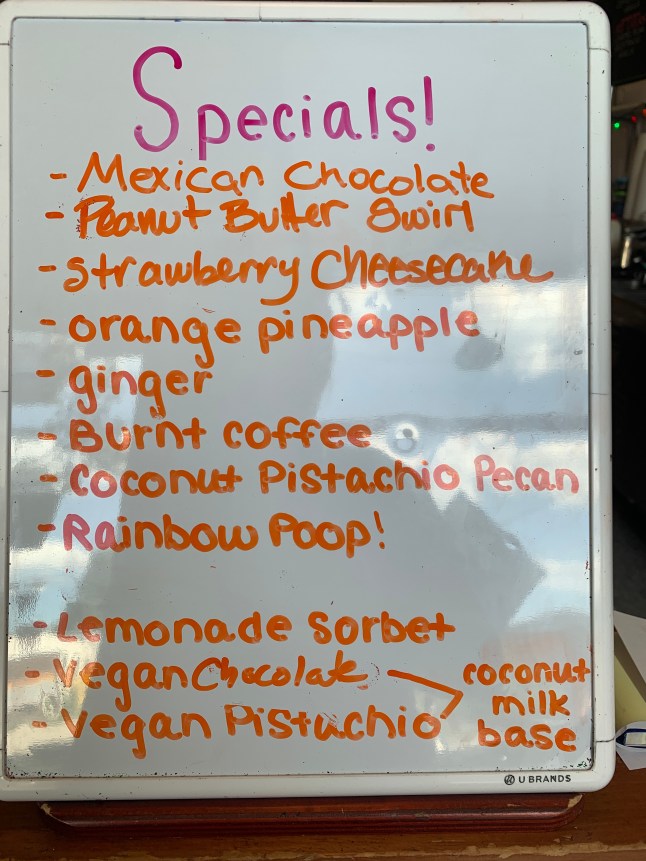 Specials!
- Mexican Chocolate
- Peanut Butter Swirl
- strawberry Cheesecake
- orange pineapple
- ginger
- Burnt coffee
- Coconut Pistachio Pecan
- Rainbow Poop!
- Lemonade Sorbet
- Vegan Chocolate
- Vegan Pistachio
coconut
milk
base
U BRANDS